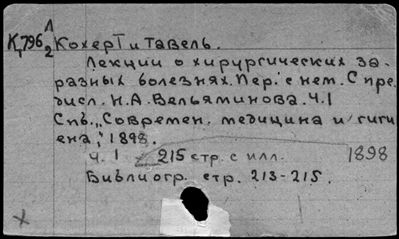 К796 Л/2 Кохер Т и Тавель.
Лекции о хирургических за-
разных болезнях. Пер. с нем. С пре-
дисл. Н.А. Вельяминова. Ч.1
Спб. „Современ. медицина и гиги-
ена", 1898.
Ч. 1 215 стр. с илл. 1898
Библиогр. стр. 213-215.